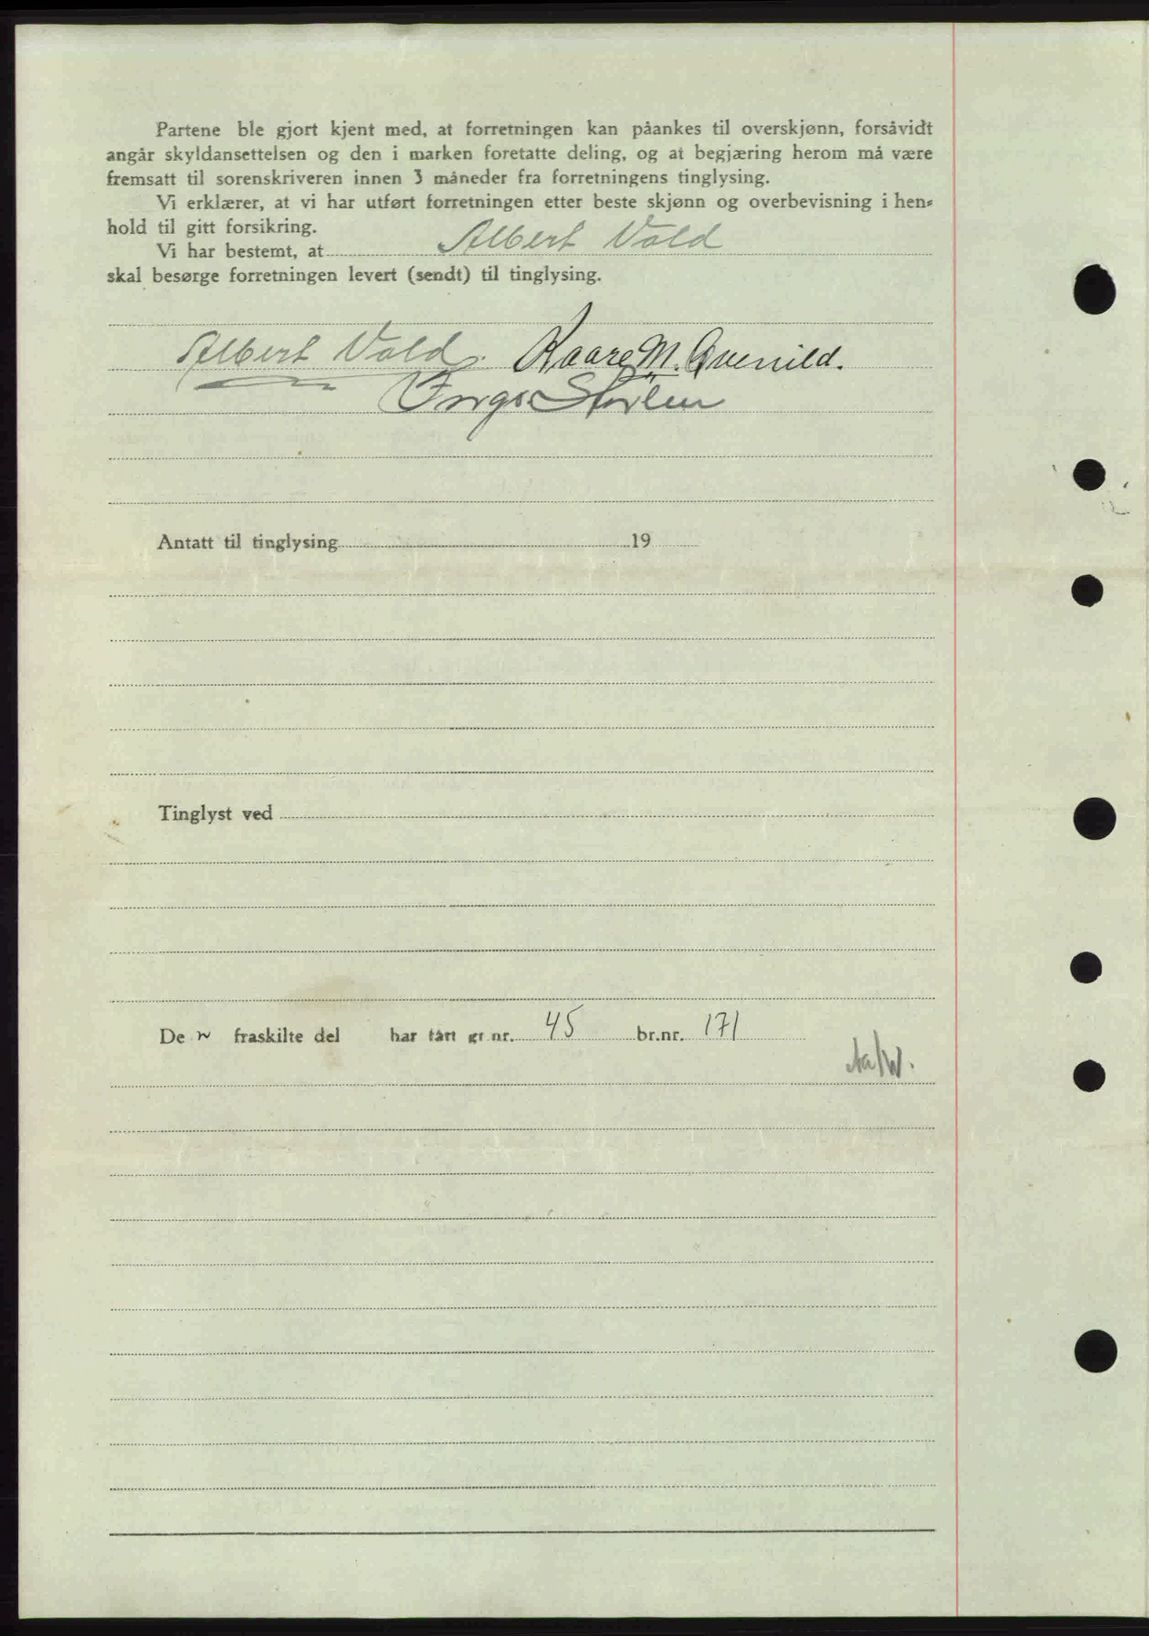 Partene ble gjort kjent med, at forretningen kan påankes til overskjønn, forsåvidt
angår skyldansettelsen og den i marken foretatte deling, og at begjæring herom må være
fremsatt til sorenskriveren innen 3 måneder fra forretningens tinglysing.
Vi erklærer, at vi har utført forretningen etter beste skjønn og overbevisning i hen-
hold til gitt forsikring.
Vi har bestemt, at Albert Vold
skal besørge forretningen levert (sendt) til tinglysing.
Albert Vold. Kaare M.
Antatt til tinglysing 19
Tinglyst ved
De n fraskilte del har fått gr.nr. 45 br.nr. 171